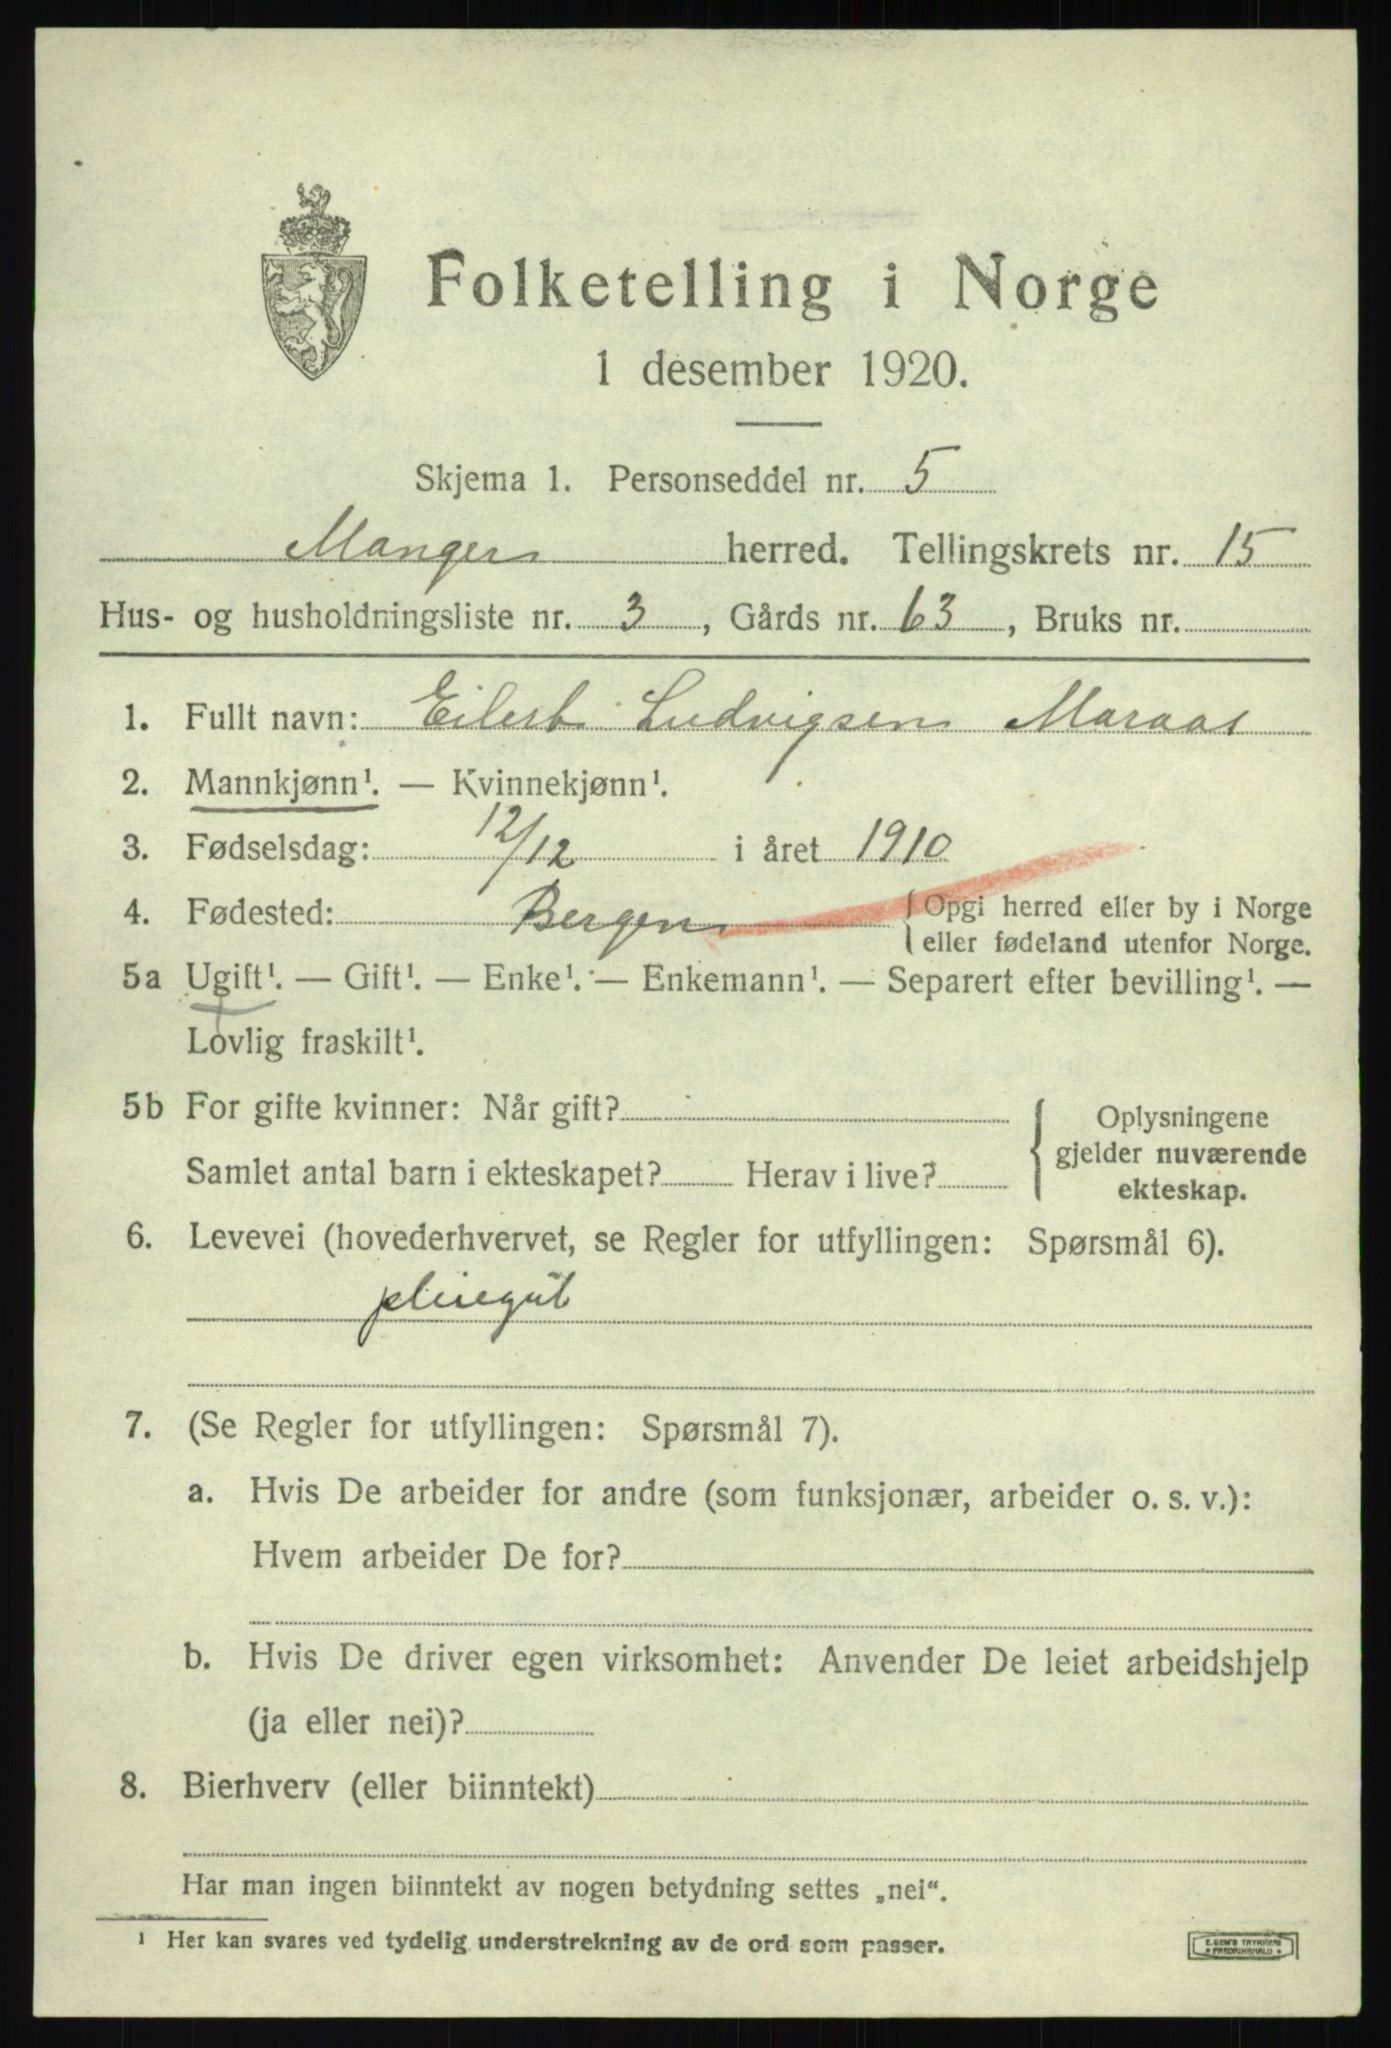 Folketelling i Norge
1 desember 1920.
Skjema 1. Personseddel nr. 5
Manger herred. Tellingskrets nr. 15
Hus- og husholdningsliste nr. 3, Gårds nr. 63, Bruks nr.
1. Fullt navn: Eilert Ludvigsen Maraas
2. Mannkjønn¹. — Kvinnekjønn¹.
3. Fødselsdag: 12/12 i året 1910
4. Fødested: Bergen { Opgi herred eller by i Norge
eller fødeland utenfor Norge.
5a Ugift¹. — Gift¹. — Enke¹. — Enkemann¹. — Separert efter bevilling¹. —
Lovlig fraskilt¹.
5b For gifte kvinner: Når gift?
Samlet antal barn i ekteskapet? Herav i live?
Oplysningene
gjelder nuværende
ekteskap.
6. Levevei (hovederhvervet, se Regler for utfyllingen: Spørsmål 6).
pleiegut
7. (Se Regler for utfyllingen: Spørsmål 7).
a. Hvis De arbeider for andre (som funksjonær, arbeider o. s. v.):
Hvem arbeider De for?
b. Hvis De driver egen virksomhet: Anvender De leiet arbeidshjelp
(ja eller nei)?
8. Bierhverv (eller biinntekt)
Har man ingen biinntekt av nogen betydning settes „nei“.
¹ Her kan svares ved tydelig understrekning av de ord som passer.
E. SEM'S TRYKKERI
FREDRIKSHALD